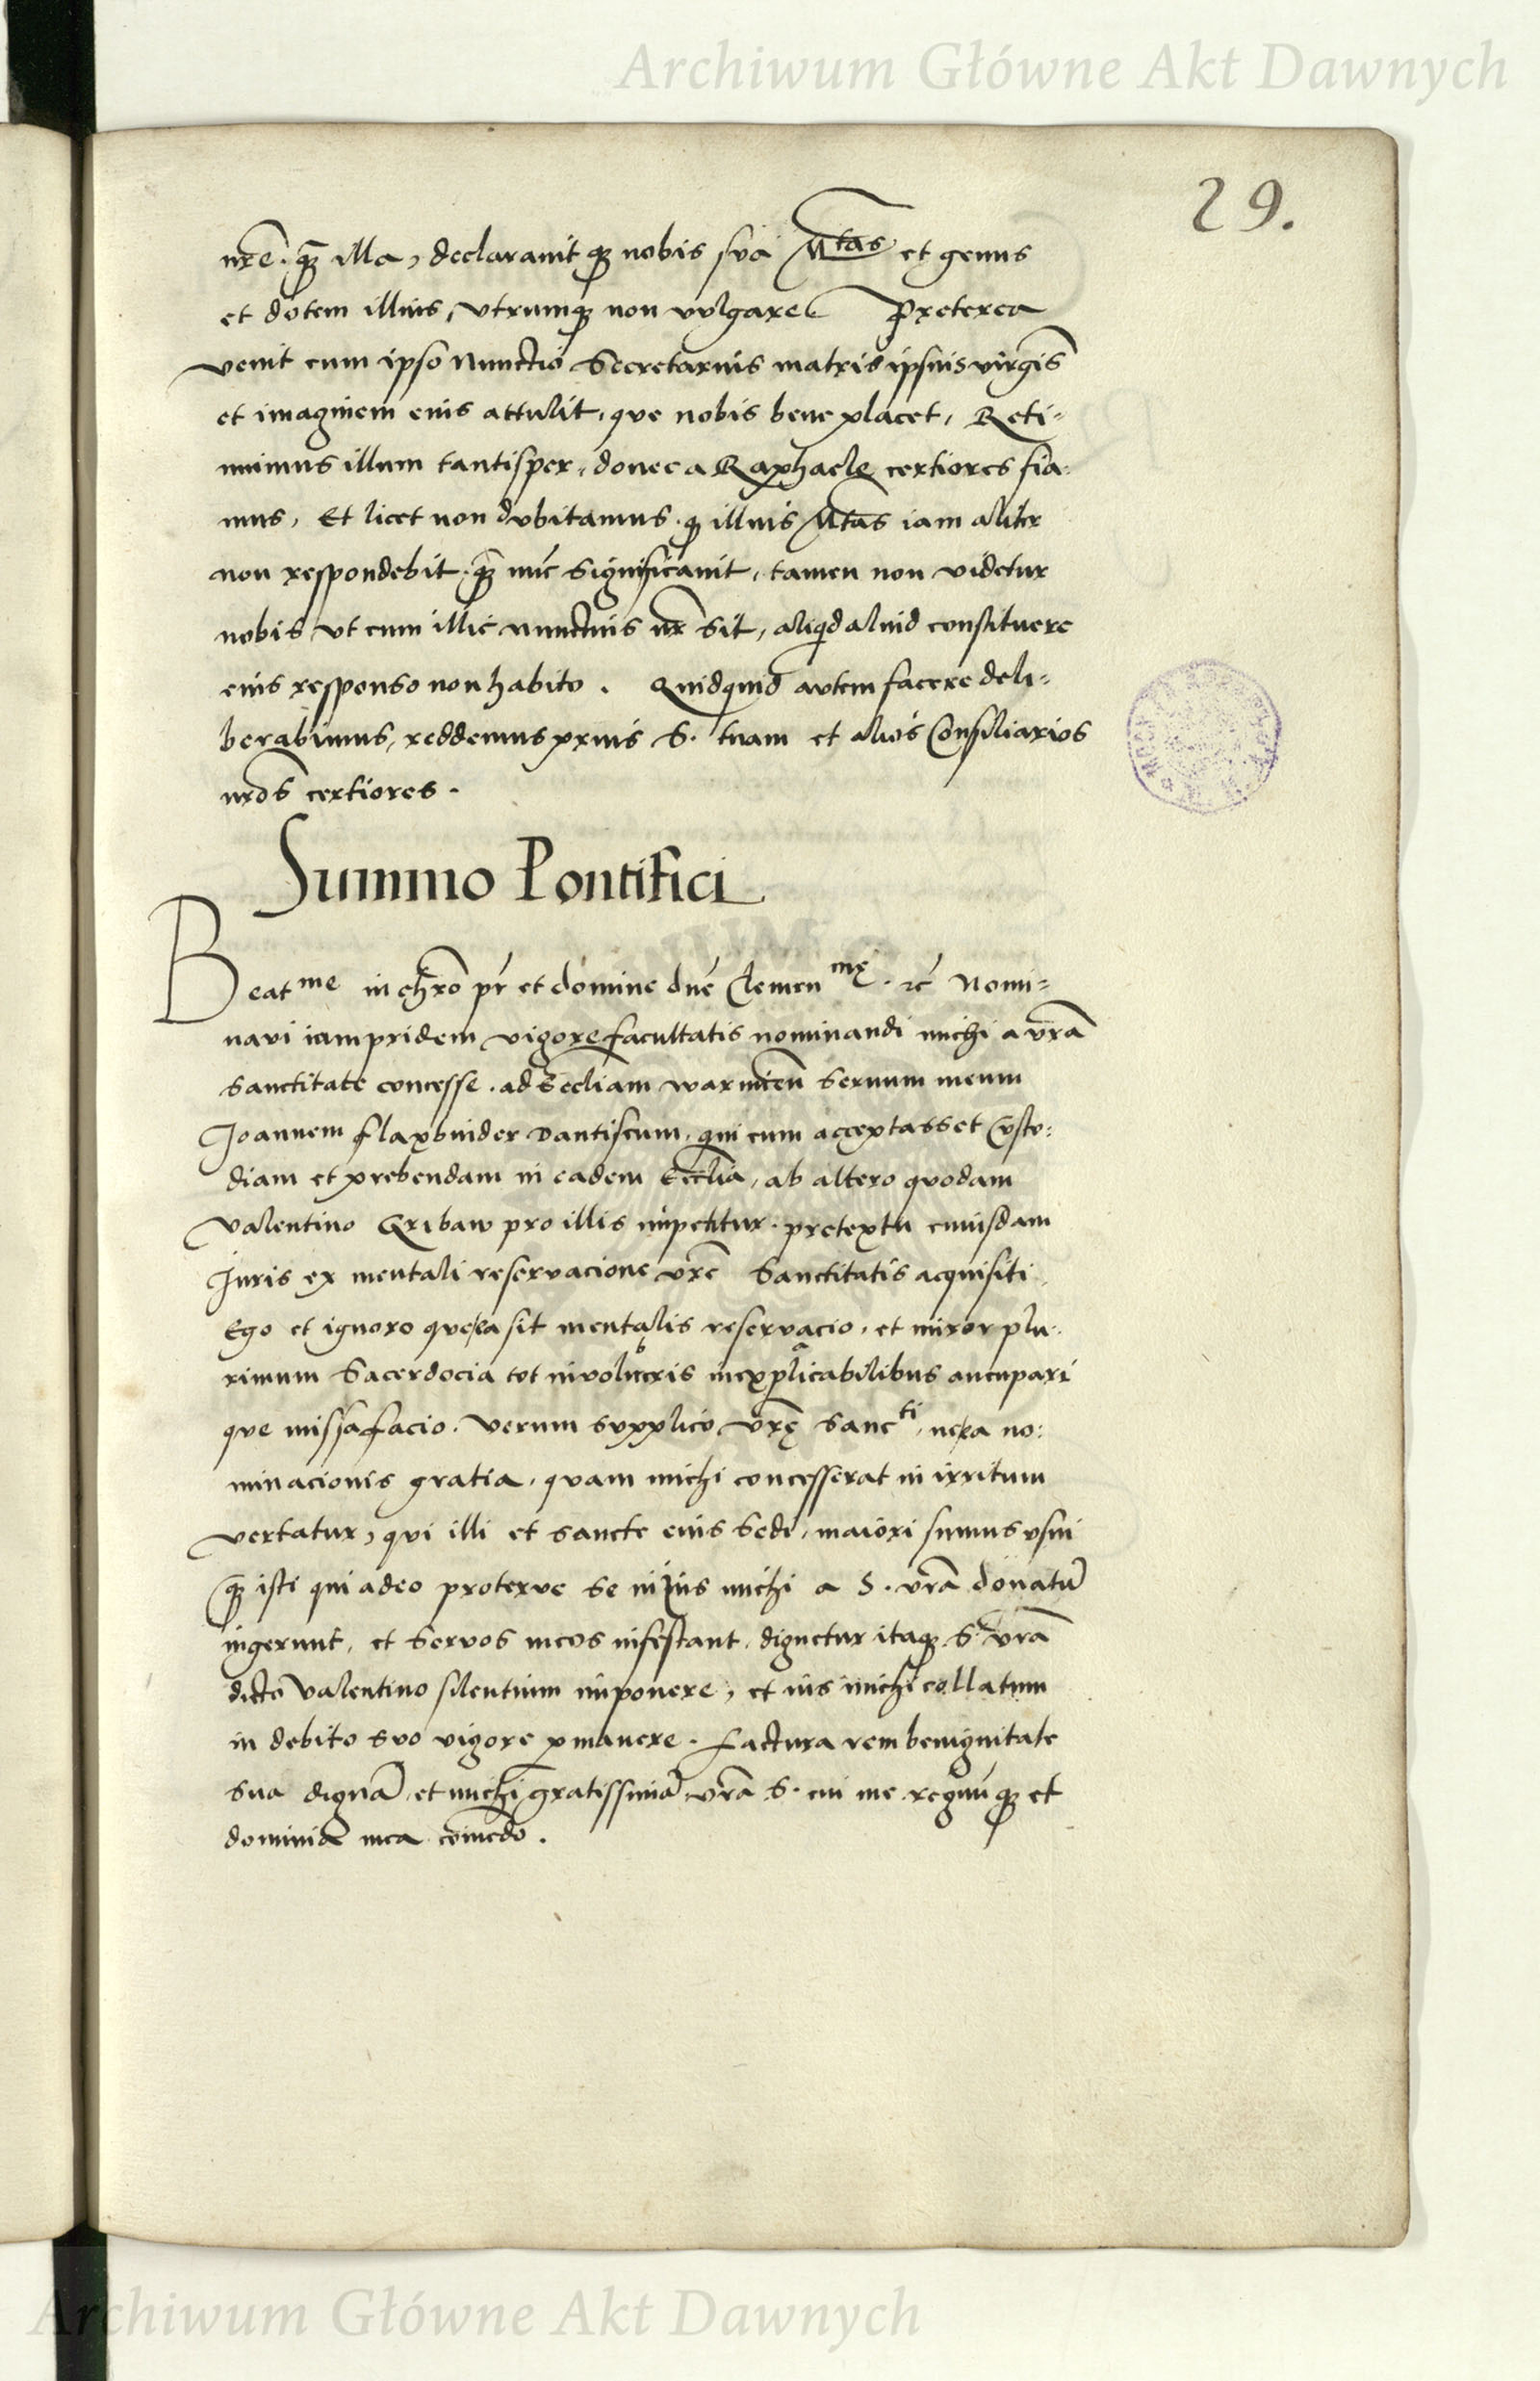 Archiwum Główne Akt Dawnych
29.
nr̃e. q̃ illa, declaravit q nobis sua M͠tas et genus
et dotem illius, utrumq non vulgare Preterea
venit cum ipso Nunctio Secretarius matris ipsius virgĩs
et imaginem eius attulit, que nobis bene placet, Reti=
nuimus illum tantisper, donec a Raphaele certiores fia-
mus, Et licet non dubitamus q illius M͠tas iam aliter
non respondebit q̃ nũc significavit, tamen non videtur
nobis ut cum illic nunctius nr̃ sit, aliqd aliud constituere
eius responso non habito. Quidquid autem facere deli=
berabimus, reddemus prius S. tuam et alios Consiliarios
nrõs certiores.
Summo Pontifici
Beatme in chrõ pr̃ et domine dnẽ Clemenmę. rc̃ Nomi=
navi iampridem vigore facultatis nominandi michi a vr̃a
Sanctitate concesse. ad Eccliam warmieñ Servum meum
Joannem flaxbinder Dantiscum, qui cum acceptasset Custo:
diam et prebendam in eadem Ecclia, ab altero quodam
Valentino Gribaw pro illis impetitur. pretextu cuiusdam
Juris ex mentali reservacione vr̃e Sanctitatis acquisiti.
Ego et ignoro que ea sit mentalis reservacio, et miror plu-
rimum Sacerdocia tot involucris inexplicabilibus aucupari
que missa facio. Verum supplico vr̃ę Sancti, ne ea no:
minacionis gratia, quam michi concesserat in irritum
vertatur, qui illi et sancte eius Sedi, maiori sumus usui
q̃ isti qui adeo proterve se in ius michi a S. vr̃a donatũ
ingerunt, et Servos meos infestant. dignetur itaq S. vr̃a
dicto Valentino silentium imponere, et ius michi collatum
in debito suo vigore pmanere. factura rem benignitate
sua dignã, et michi gratissimã vr̃a S. cui me regnũ q et
dominia mea cõmedo.
Archiwum Główne Akt Dawnych